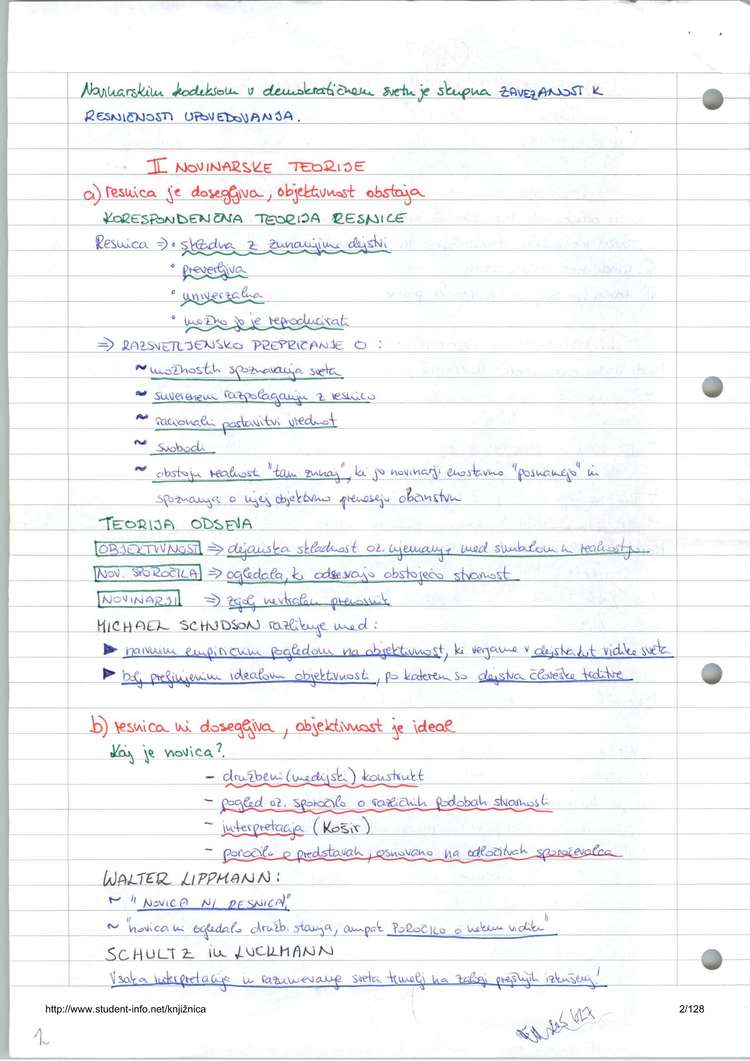 Novinarskim kodeksom v demokratičnem svetu je skupna ZAVEZANOST K
RESNIČNOSTI UPOVEDOVANJA.
II NOVINARSKE TEORIJE
a) resnica je dosegljiva, objektivnost obstaja
KORESPONDENČNA TEORIJA RESNICE
Resnica => • skladna z zunanjimi dejstvi
• preverljiva
• univerzalna
• možno jo je reproducirati
=> RAZSVETLJENSKO PREPRIČANJE O :
~ možnostih spoznavanja sveta
~ suverenem razpolaganju z resnico
~ racionalni postavitvi vrednot
~ svobodi
~ obstoju realnosti "tam zunaj", ki jo novinarji enostavno "posnamejo" in
spoznanja o njej objektivno prenesejo občinstvu
TEORIJA ODSEVA
OBJEKTIVNOST => dejanska skladnost oz. ujemanje med simbolom in realnostjo
NOV. SPOROČILA => ogledala, ki odsevajo obstoječo stvarnost
NOVINARJI => zgolj nevtralen prenosnik
MICHAEL SCHUDSON razlikuje med :
► naivnim empiričnim pogledom na objektivnost, ki verjame v dejstva kot vidike sveta
► bolj prefinjenim idealom objektivnosti, po katerem so dejstva človeške trditve
b) resnica ni dosegljiva, objektivnost je ideal
Kaj je novica?
- družbeni (medijski) konstrukt
- pogled oz. sporočilo o različnih podobah stvarnosti
- interpretacija (Košir)
- poročilo o predstavah, osnovano na odločitvah sporočevalca
WALTER LIPPMANN :
~ "NOVICA NI RESNICA!"
~ "novica ni ogledalo družb. stanja, ampak POROČILO o nekem vidiku"
SCHULTZ in LUCKMANN
Vsaka interpretacija in razumevanje sveta temelji na zalogi prejšnjih izkušenj!
http://www.student-info.net/knjižnica
2/128
1